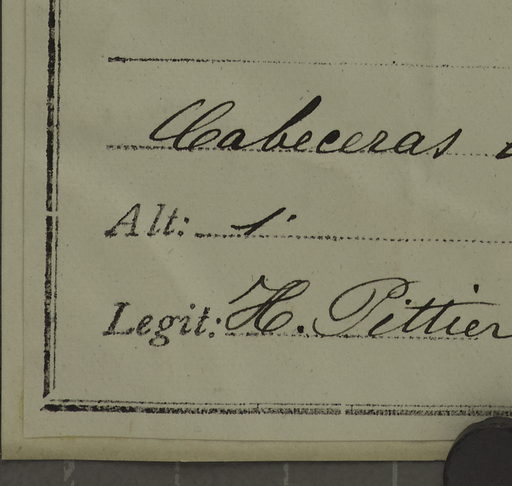 Cabeceras
Alt:
Legit: H. Pittier